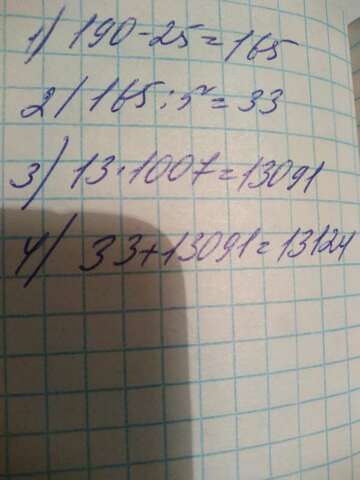 1) 190-25=165
2) 165:5=33
3) 13·1007=13091
4) 33+13091=13124